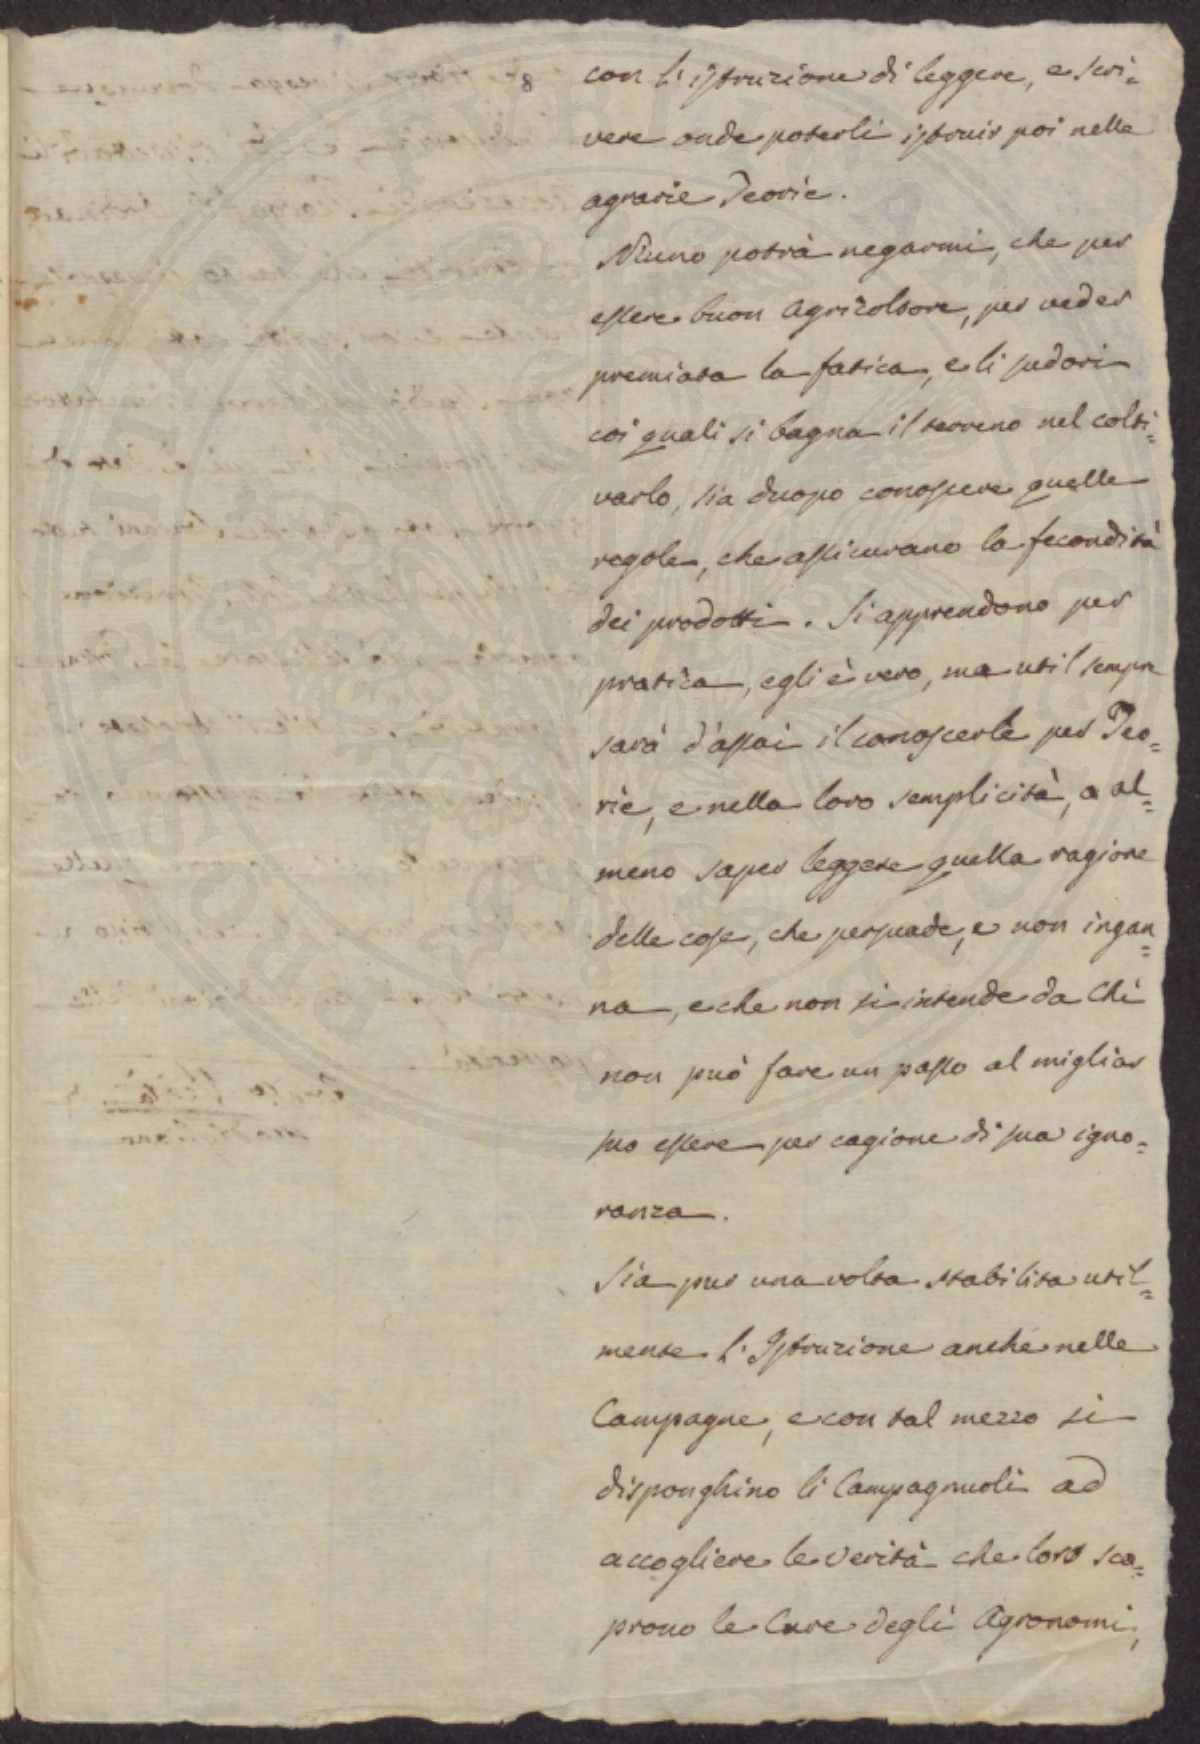 8
con l'istruzione di leggere, e scri=
vere onde poterli istruir poi nelle
agrarie Teorie.
Niuno potrà negarmi, che per
essere buon Agricoltore, per veder
premiata la fatica, e li sudori
coi quali si bagna il terreno nel colti=
varlo, sia duopo conoscere quelle
regole, che assicurano la fecondità
dei prodotti. Si apprendono per
pratica, egli è vero, ma util sempre
sarà d'assai il conoscerle per Teo=
rie, e nella loro semplicità, o al=
meno saper leggere quella ragione
delle cose, che persuade, e non ingan=
na, e che non si intende da chi
non può fare un passo al miglior
suo essere per cagione di sua igno=
ranza.
Sia pur una volta stabilita util=
mente l'Istruzione anche nelle
Campagne, e con tal mezzo si
disponghino li Campagnuoli ad
accogliere le verità che loro sco=
prono le Cure degli Agronomi,